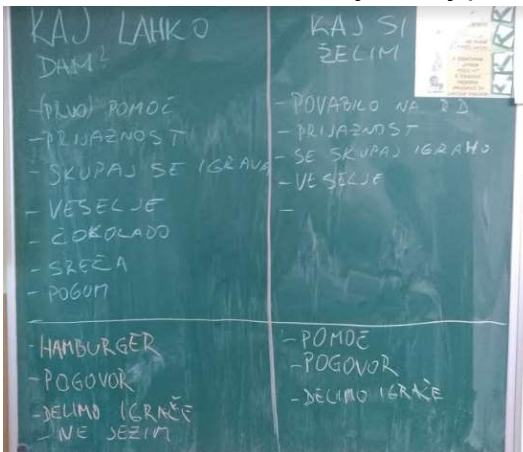 KAJ LAHKO
DAM?
- (PRVO) POMOČ
- PRIJAZNOST
- SKUPAJ SE IGRAVA
- VESELJE
- ČOKOLADO
- SREČA
- POGUM
- HAMBURGER
- POGOVOR
- DELIMO IGRAČE
- NE JEZIM
KAJ SI
ŽELIM
- POVABILO NA RD
- PRIJAZNOST
- SE SKUPAJ IGRAMO
- VESELJE
-
- POMOČ
- POGOVOR
- DELIMO IGRAČE